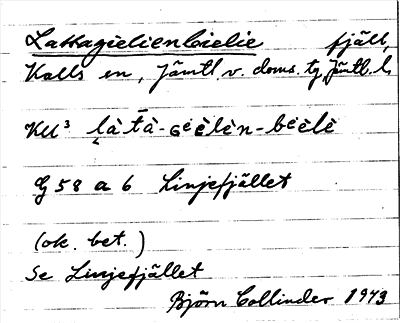 Lattagielienbielie fjäll,
Kalls sn, Jämtl. v. doms. tg, Jämtl. l.
KU³ l̨àt̄à-gèèlèn-bèèlè
G 58 a 6 Linjefjället
(ok. bet.)
Se Linjefjället
Björn Collinder 1943